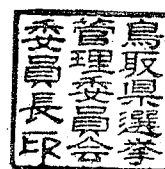 鳥取県選挙
管理委員会
委員長印